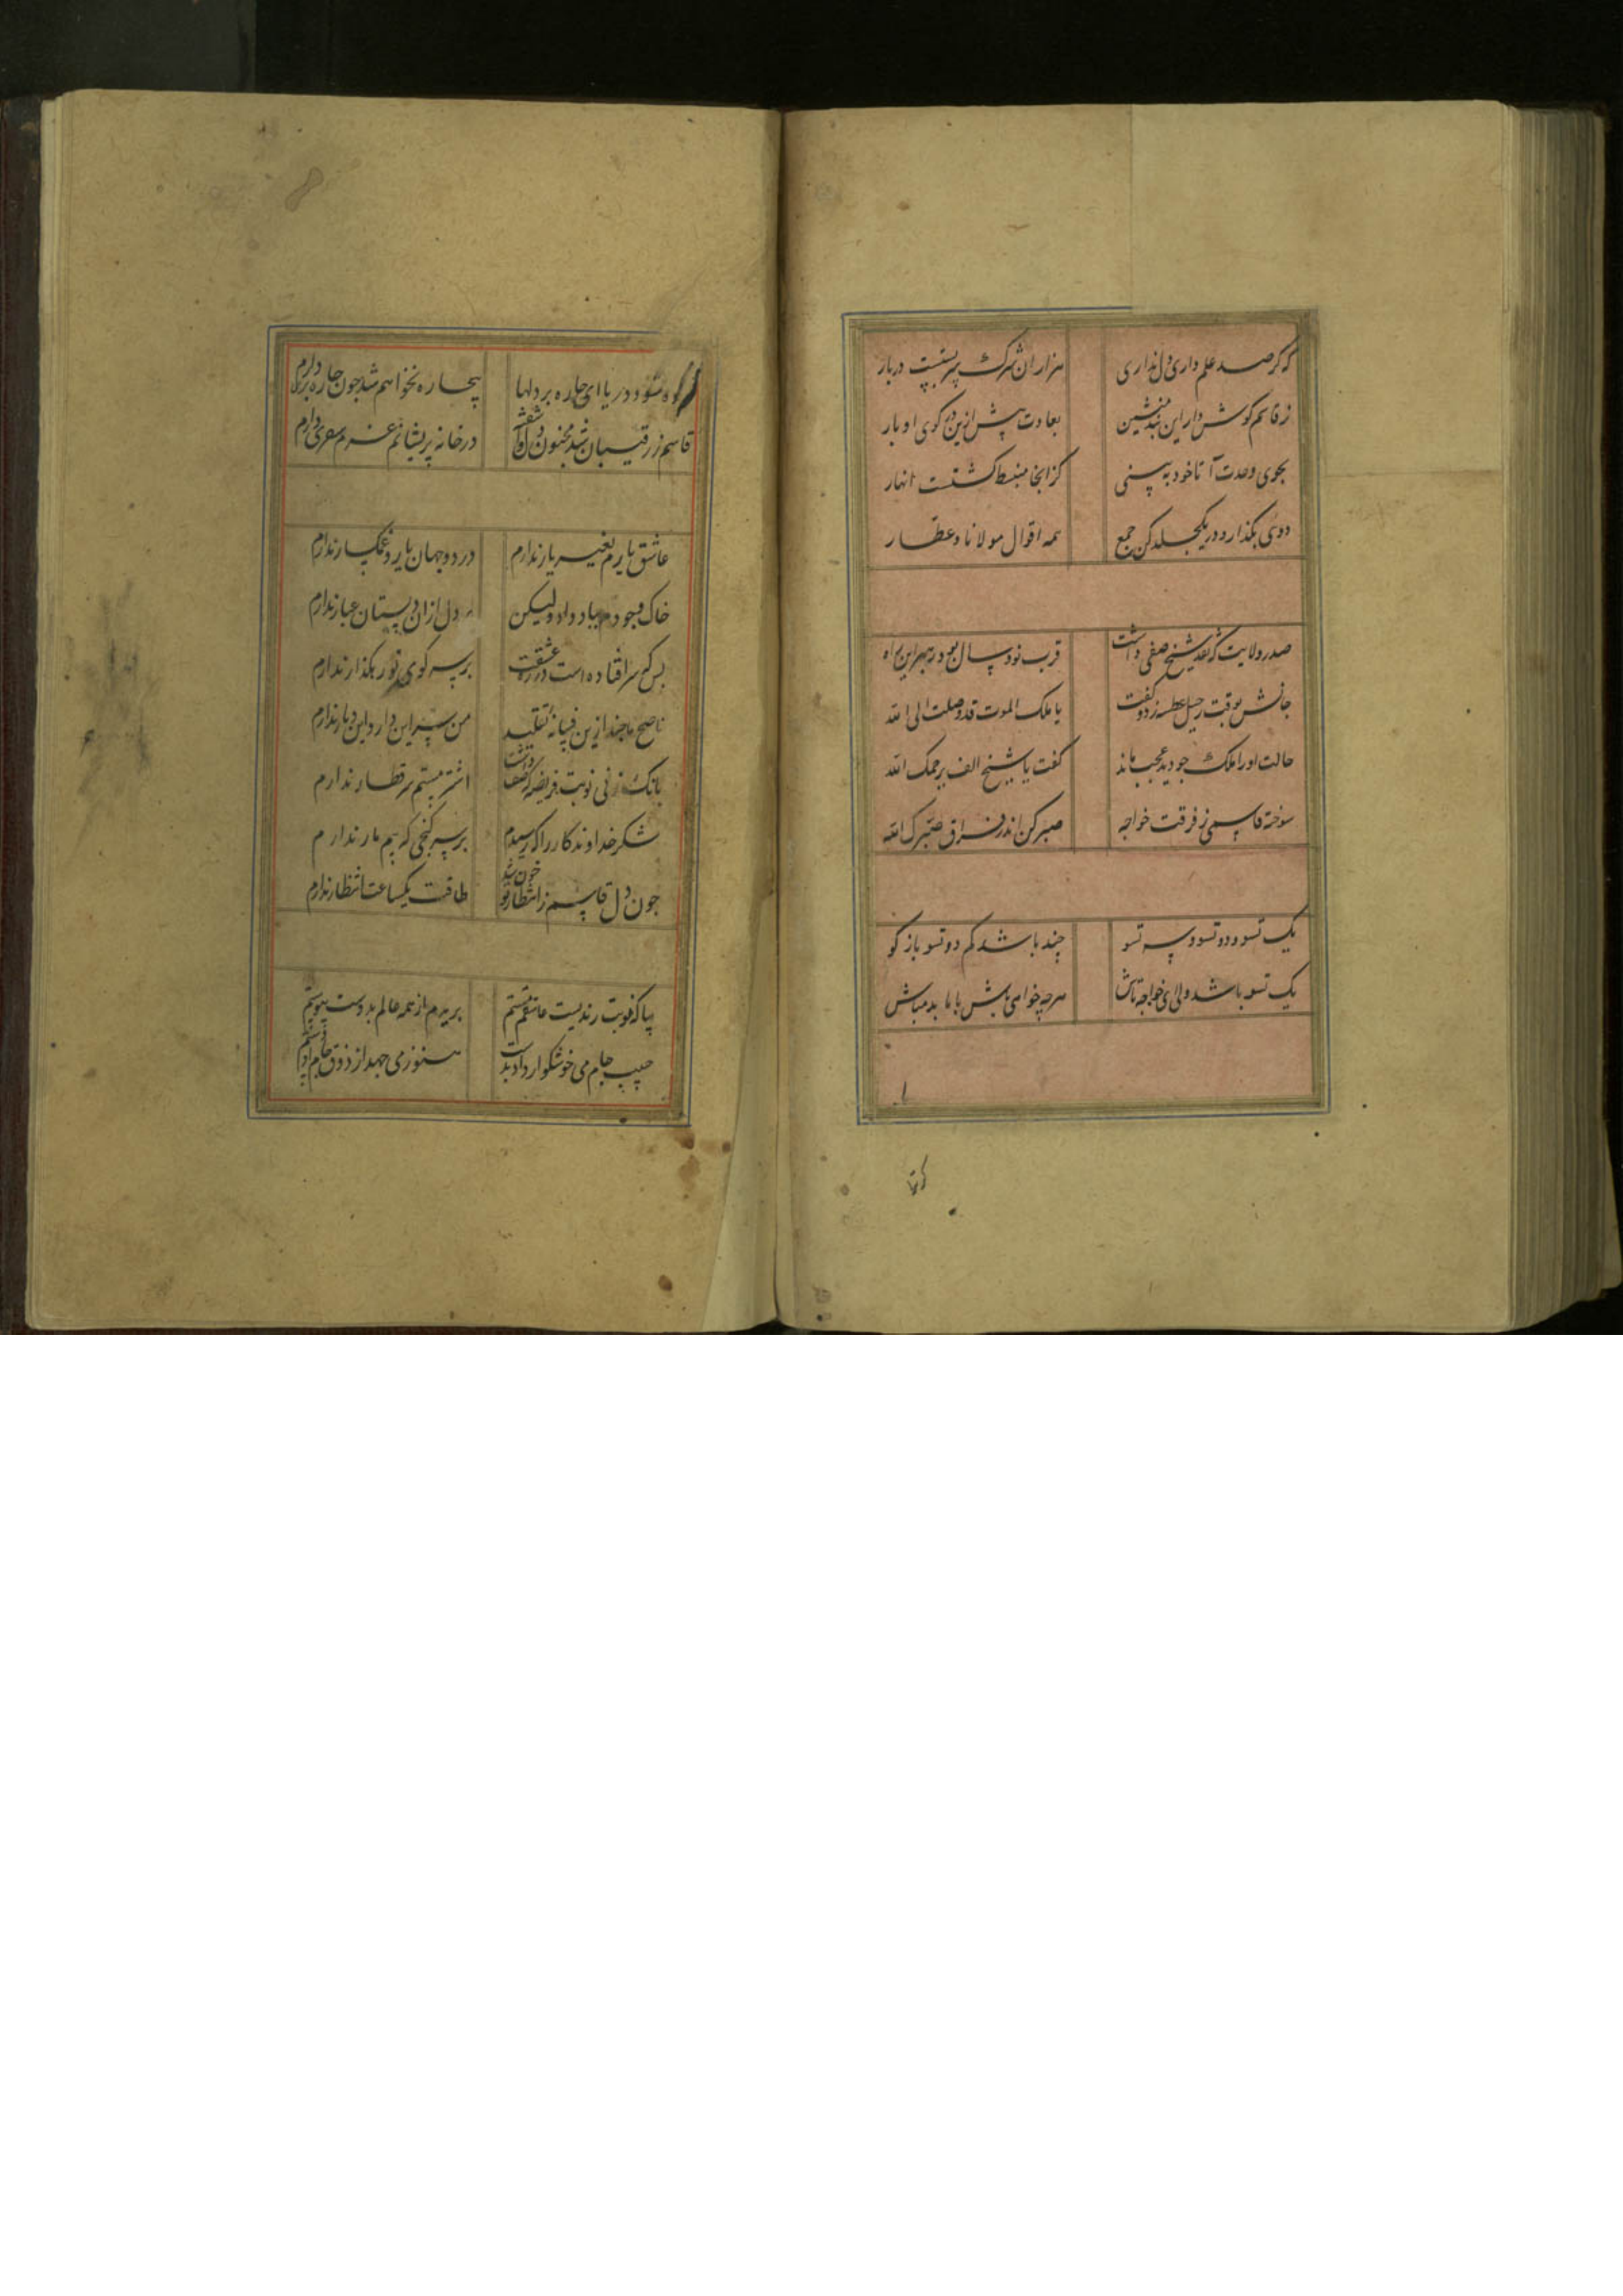 که گر صد علم داری دل نداری هزاران شرک پر بستیت دربار
ز قاسم گوش دار این پند بنشین بعادت پیش ازین در کوی او بار
بجوی وحدت آ تا خود به بینی کز انجا منبسط کشتست انهار
دوی بکذار و در یکجلد کن جمع همه اقوال مولانا و عطار
صدر ولایت که نقد شیخ صفی داشت قرب نود سال بود رهبر این راه
جانش بوقت رحیل عطسه زد و کفت یا ملک الموت قد وصلت الی الله
حالت او را ملک چو دید عجب ماند کفت یا شیخ الف یرحمک الله
سوخته قاسمی ز فرقت خواجه صبر کن اندر فراق صبرک الله
یک تسو و دو تسو و سه تسو چند باشد کم دو تسو باز کو
یک تسو باشد ولی ای خواجه تاش هرچه خواهی باش با ما بد مباش
شود دریا ای چاره بر دلها بیچاره نخواهم شد چون چاره بری دارم
قاسم ز رقیبان شد مجنون و در خانه پریشانم عزم سفری دارم
عاشق یارم بغیر یار ندارم در دو جهان یار و غمکسار ندارم
خاک وجودم بباد داد ولیکن دل ازان دستان غبار ندارم
بس که سر افتاده است در ره عشقت بر سر کوی تو رهکذار ندارم
ناصح ما چند ازین فسانه تقلید من سر این دار و این دیار ندارم
بانک زنی نوبت فریضه که صف اشتر مستم سر قطار ندارم
شکر خداوندکار را که رسیدم بر سر کنجی که بیم مار ندارم
چون دل قاسم ز انتظار تو خون شد طاقت یکساعت انتظار ندارم
بیا که نوبت رندیست عاشقم مستم بریدم از همه عالم بدوست پیوستم
حبیب جام می خوشکوار داد بدست هنوز می جهد از ذوق جام او دستم